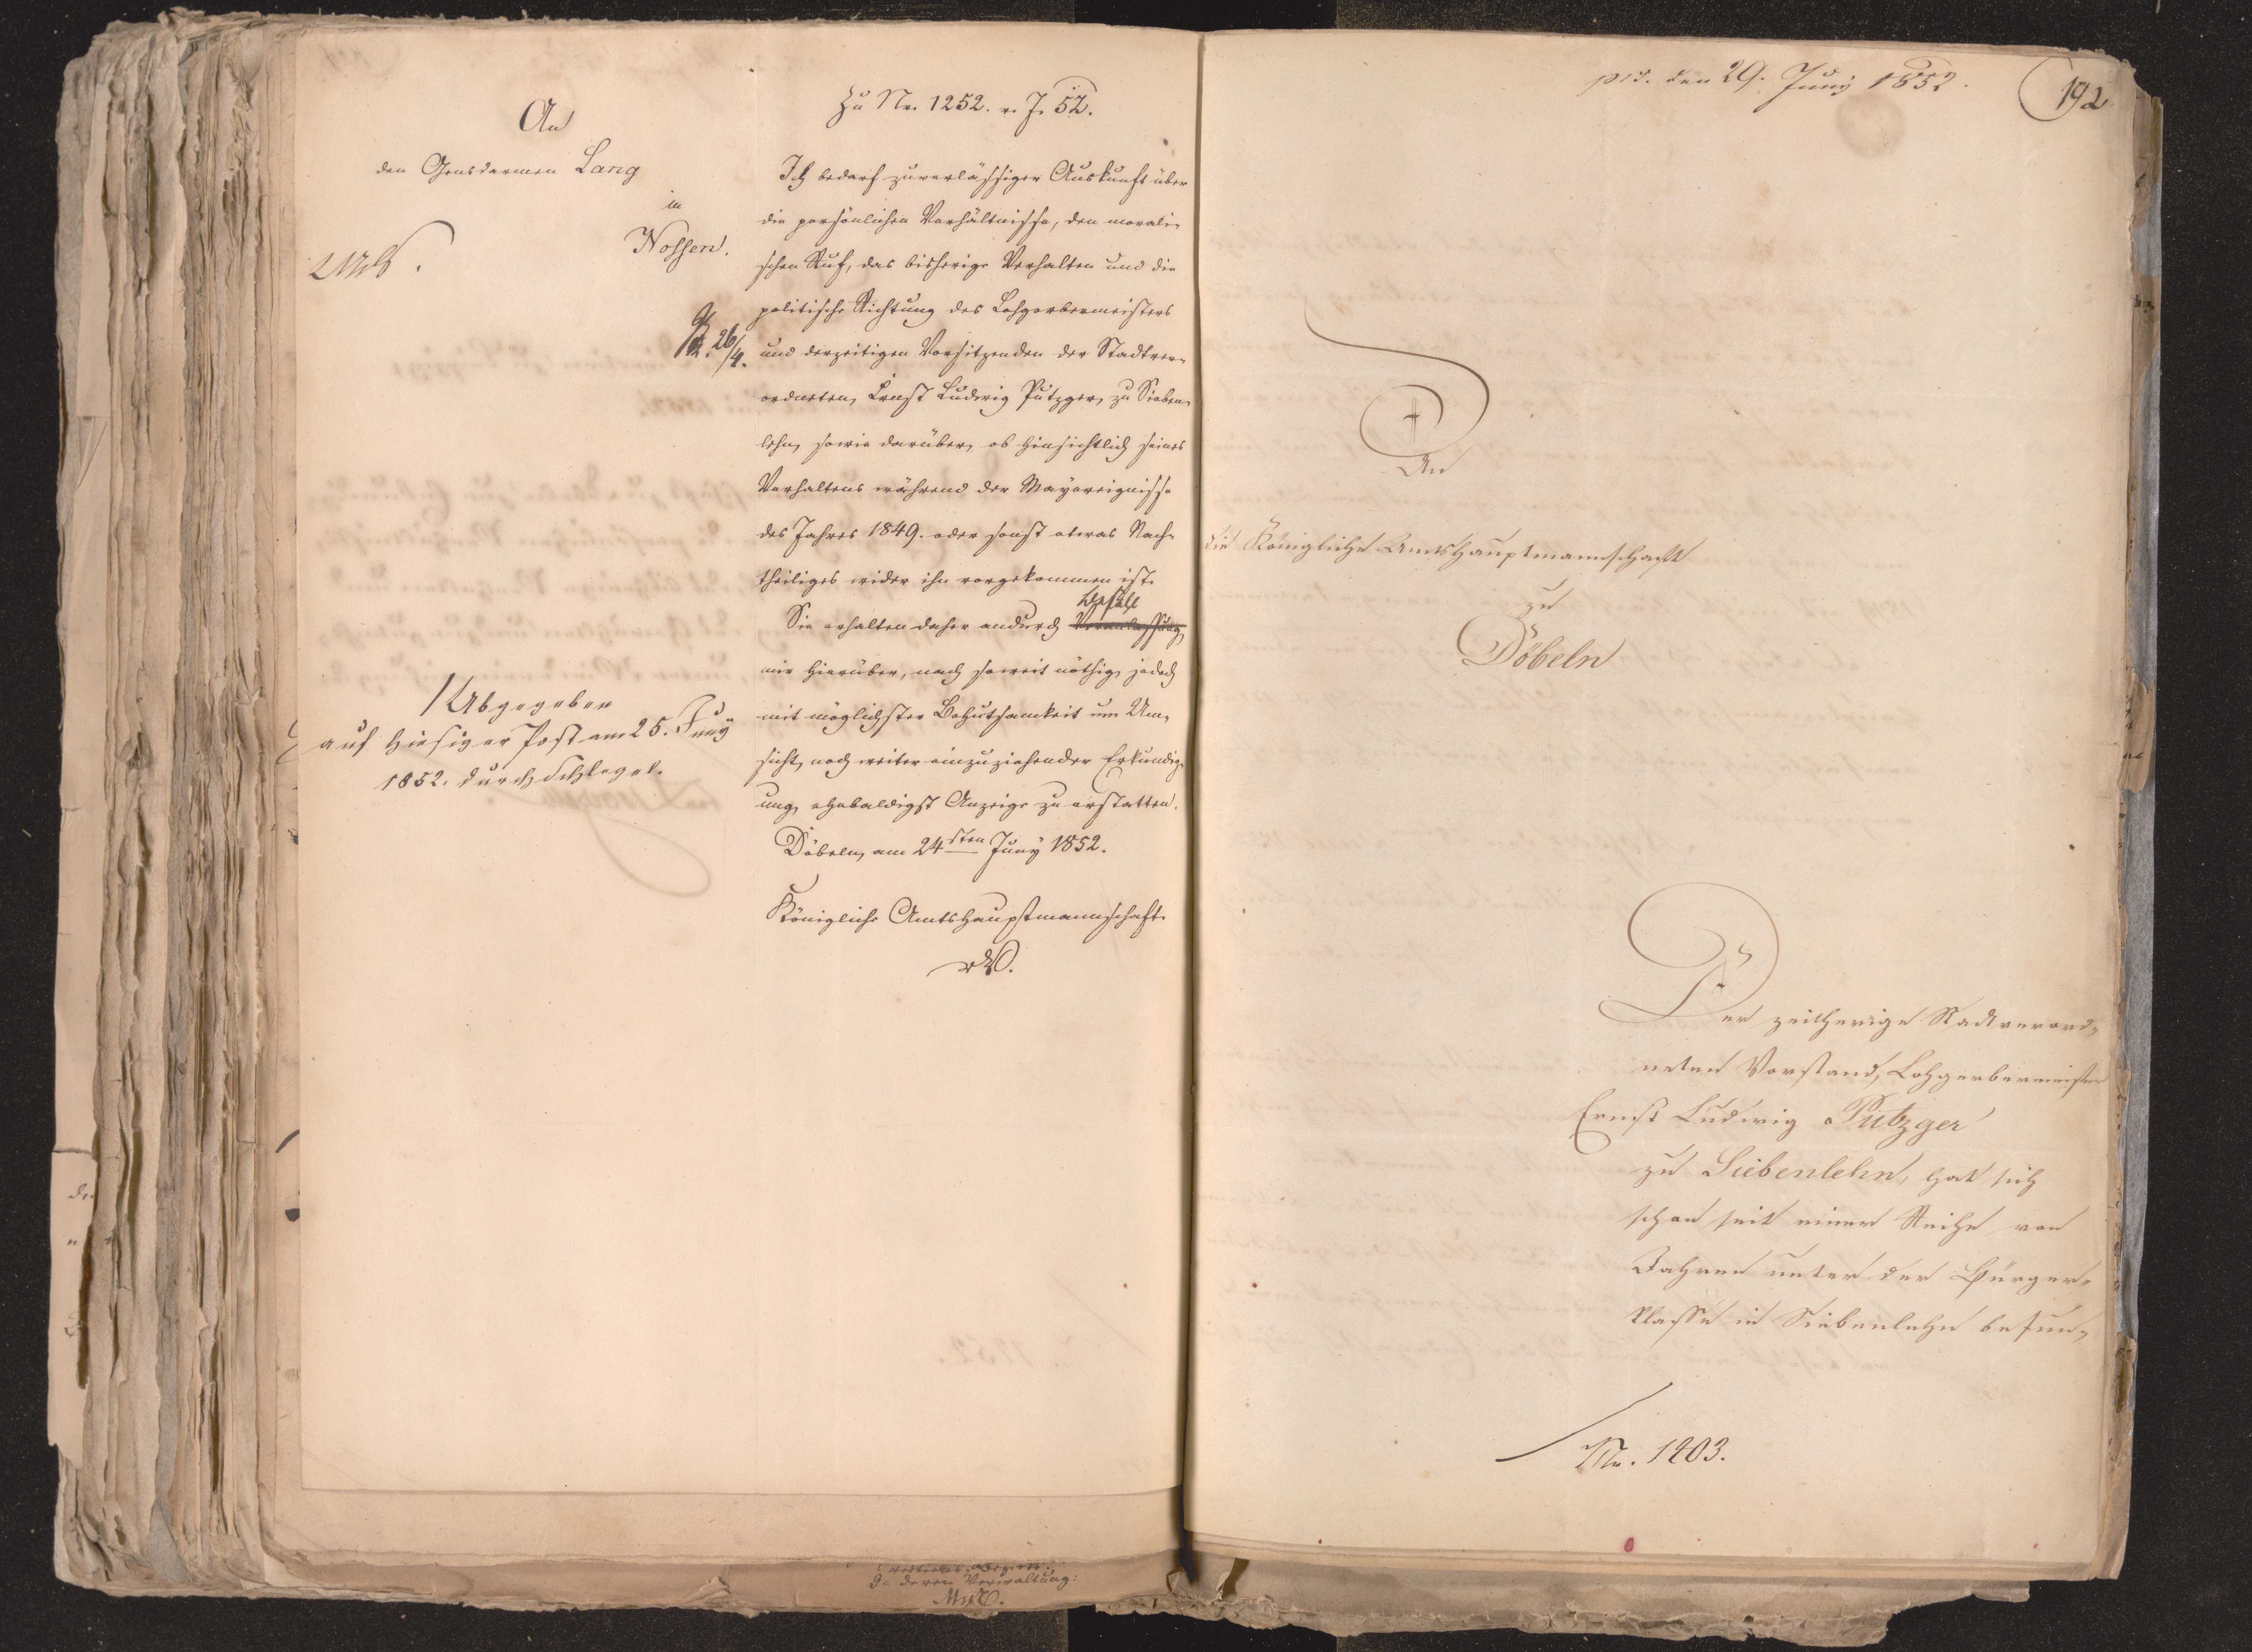 An
den Gensdarmen Lang
in
Nossen.
26/4.
/ Abgegeben
auf hiesiger Post am 25. Juny
1852. durch Schlegel.
Zu Nr. 1252. v. J. 52.
Ich bedarf zuverlässiger Auskunft über
die persönlichen Verhältnisse, den morali-
schen Ruf, das bisherige Verhalten und die
politische Richtung des Lohgerbermeisters
und derzeitigen Vorsitzenden der Stadtver-
ordneten, Ernst Ludwig Putzger, zu Sieben-
lehn, sowie darüber, ob hinsichtlich seines
Verhaltens während der Mayereignisse
des Jahres 1849. oder sonst etwas Nach-
theiliges wider ihn vorgekommen ist.
Befehl
Sie erhalten daher andurch Veranlassung,
mir hierüber, nach soweit nöthig, jedoch
mit möglichster Behutsamkeit um Um-
sicht, noch weiter einzuziehender Erkundig-
ung, ehebaldigst Anzeige zu erstatten.
Döbeln, am 24sten Juny 1852.
Königliche Amtshauptmannschaft.
In deren Verwaltung:
prs. den 29. Juny 1852.
192
An
die Königliche Amtshauptmannschaft
zu
Döbeln
Der zeitherige Stadtverord-
neten Vorstand, Lohgerbermeister
Ernst Ludwig Putzger
zu Siebenlehn, hat sich
schon seit einer Reihe von
Jahren unter der Bürger-
klasse in Siebenlehn befun-
Nr. 1403.